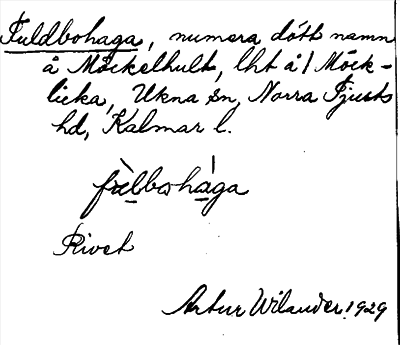 Fuldbohaga, numera dött namn
å Möckelhult, lht å 1 Möck-
licka, Ukna sn, Norra Tjusts
hd, Kalmar l.
fùlbohága
Rivet
Artur Wilander. 1929